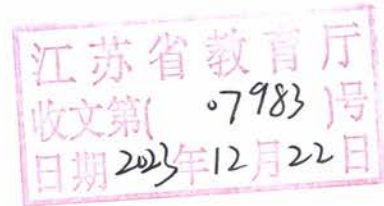 江苏省教育厅
收文第( 07983 )号
日期2023年12月22日